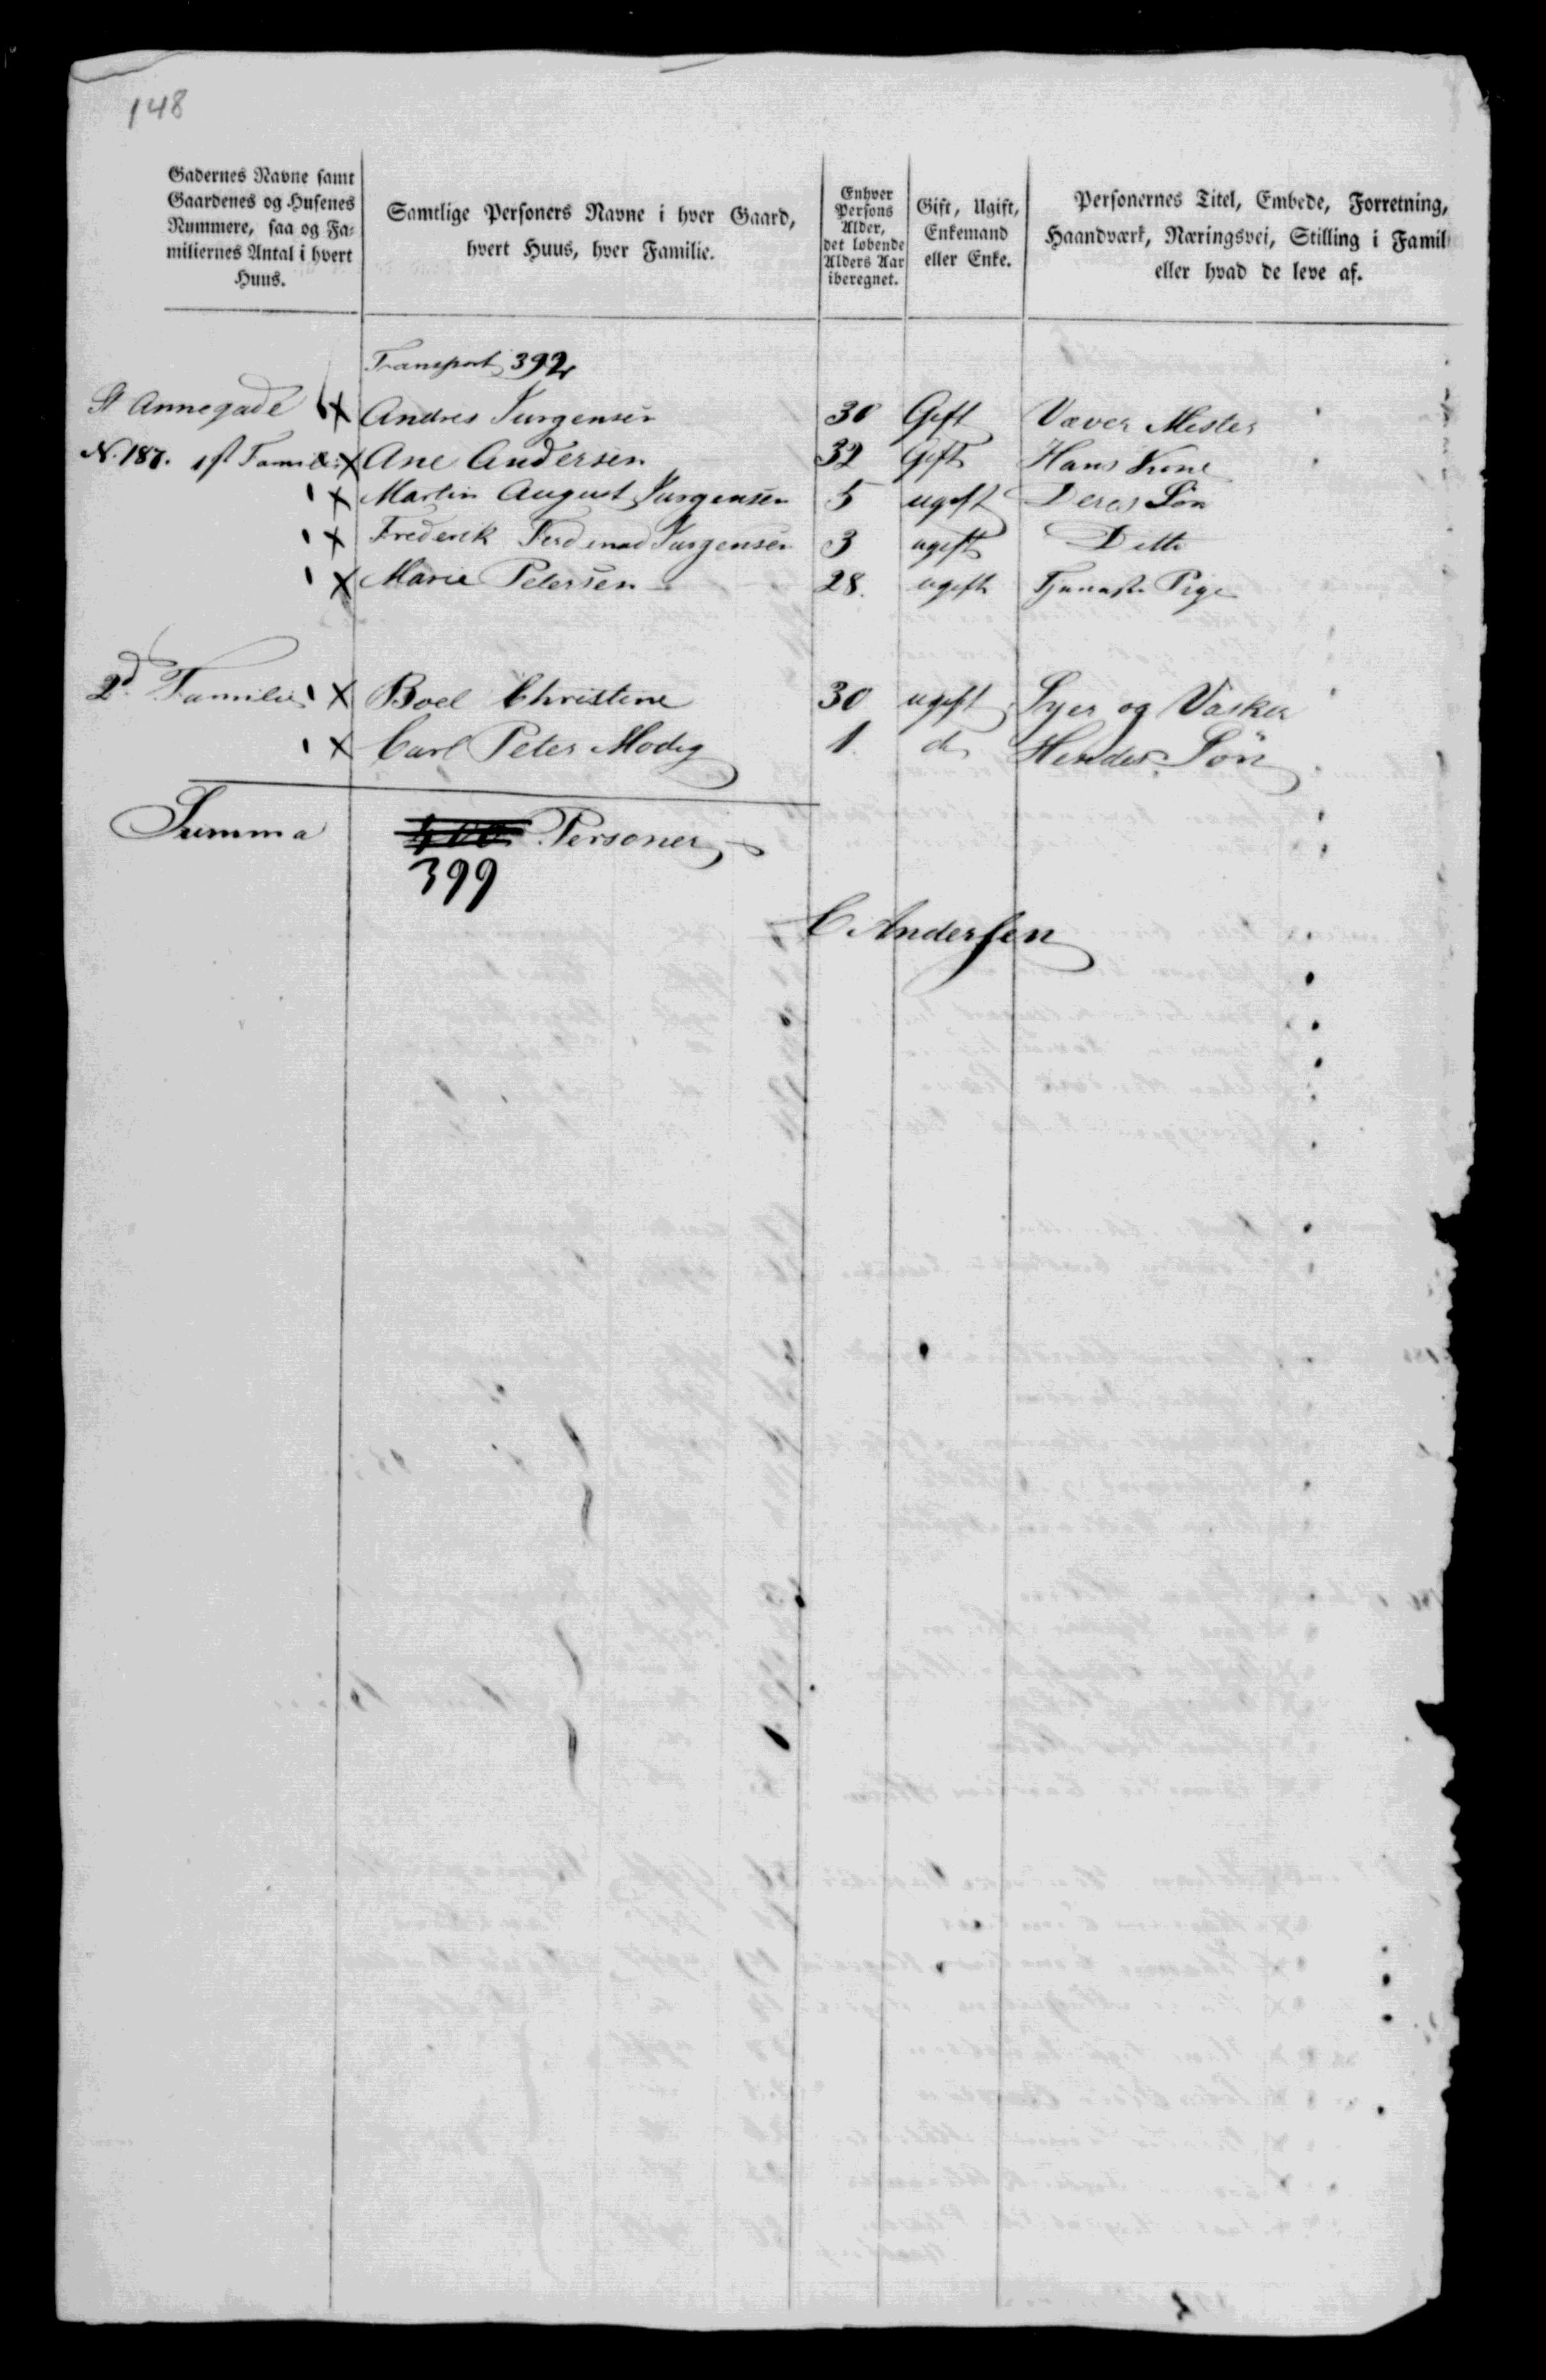 148
Gadernes Navne samt
Gaardenes og Husenes
Nummere, saa og Fa-
miliernes Antal i hvert
Huus.
Samtlige Personers Navne i hver Gaard,
hvert Huus, hver Familie.
Enhver
Persons
Alder,
det løbende
Alders Aar
iberegnet.
Gift, Ugift,
Enkemand
eller Enke.
Personernes Titel, Embede, Forretning,
Haandværk, Næringsvei, Stilling i Famil
eller hvad de leve af.
Transport 392
St Annegade x Andres Jurgensen 30 Gift Væver Mester
N. 187. 1st Familie x Ane Andersen 32 Gift Hans Kone
1 x Martin August Jurgensen 5 ugift Deres Søn
1 x Frederik Ferdinad Jurgensen 3 ugift Ditto
1 x Marie Petersen 28. ugift Tjeneste Pige
2d Familie 1 x Boel Christine 30 ugift Syer og Vasker
1 x Carl Peter Modig 1. do Hendes Søn
Summa 400 Personer
399
C Andersen